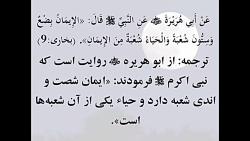 عَنْ أَبِي هُرَيْرَةَ ﷺ عَنِ النَّبِيِّ ﷺ قَالَ: «الإِيمَانُ بِضْعٌ
وَسِتُّونَ شُعْبَةً وَالْحَيَاءُ شُعْبَةٌ مِنَ الإِيمَانِ». (بخاری:9)
ترجمه: از ابو هریره روایت است که
نبی اکرم ﷺ فرمودند: «ایمان شصت و
اندی شعبه دارد و حیاء یکی از آن شعبه‌ها
است».